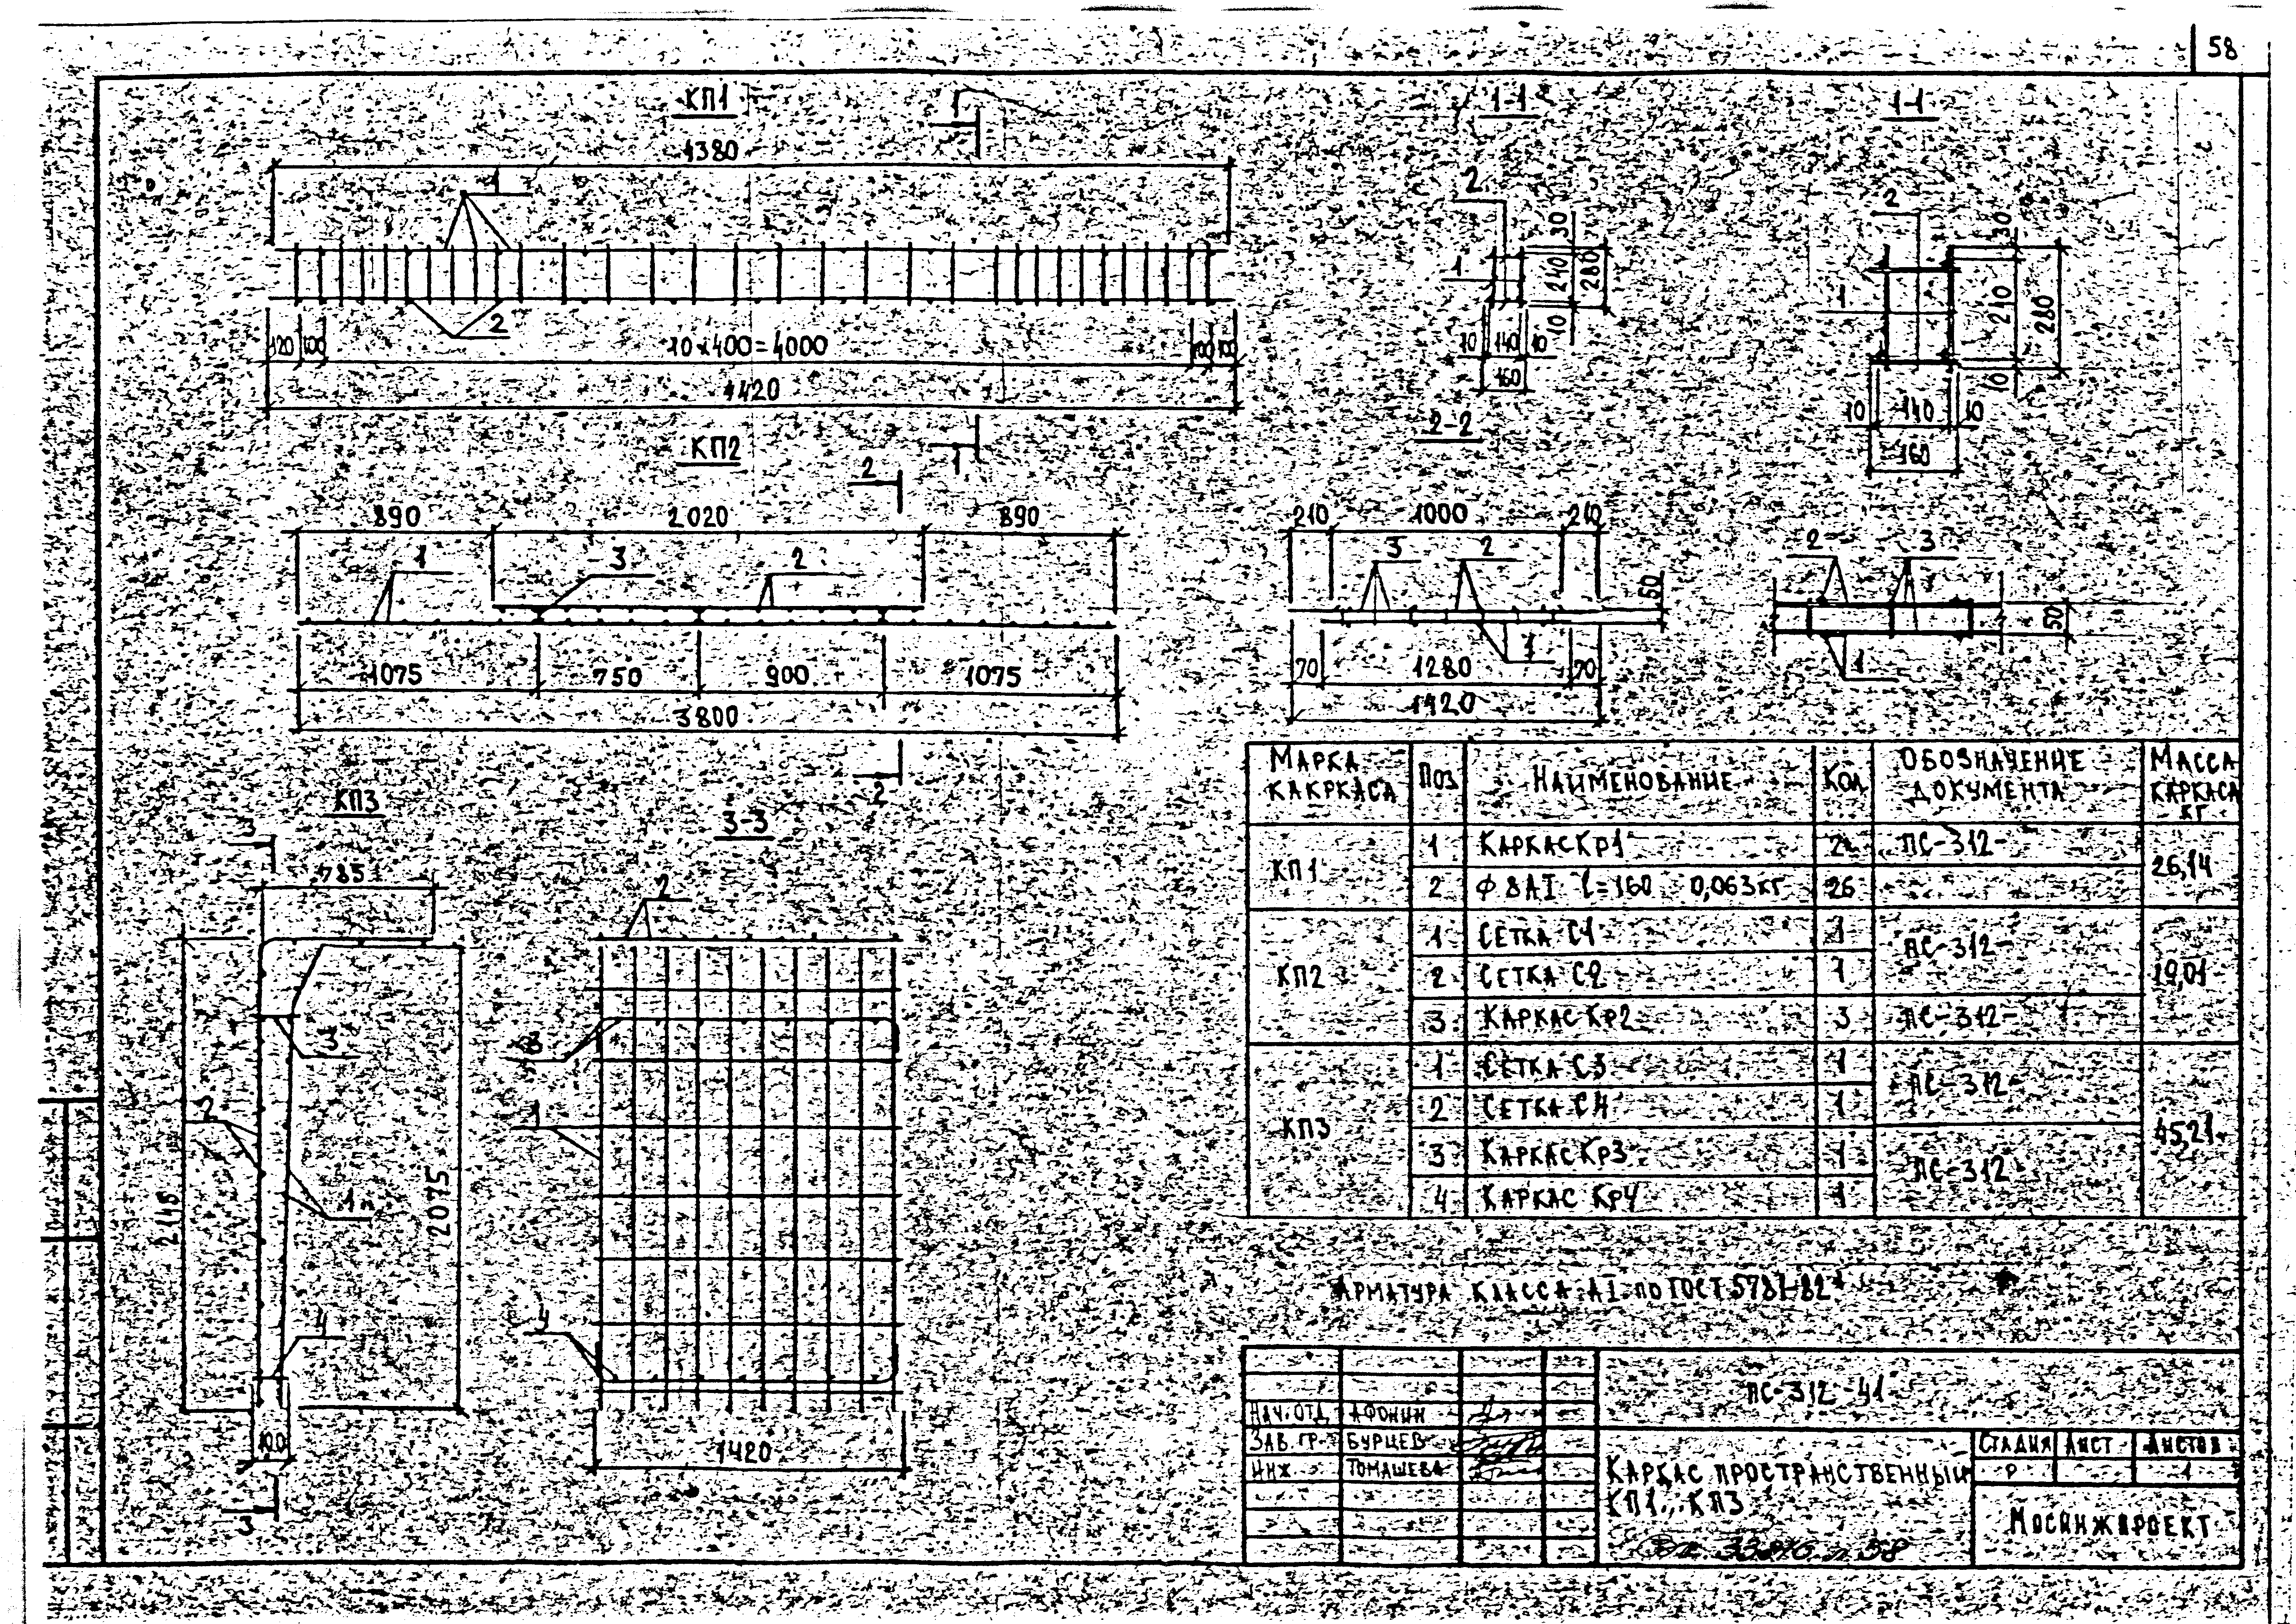 58
КП1
1
1-1
1-1
4380
1
2
120 100 10×400=4000 100 100
4420
1
2
1
30
240
280
10
10 140 10
160
2
1
30
240
280
10
10 140 10
160
КП2
2
890 2020 890
1 3 2
1075 750 900 1075
3800
2
2-2
210 1000 210
3 2
50
1
70 1280 70
1420
2 3
50
1
КП3
3
785
3
2
2115
1
2075
4
100
3
3-3
2
3
1
4
1420
МАРКА КАКРКАСА ПОЗ НАИМЕНОВАНИЕ КОЛ ОБОЗНАЧЕНИЕ ДОКУМЕНТА МАССА КАРКАСА КГ
КП1 26,14
1 КАРКАС КР1 2 ПС-312-
2 ф8АI l=160 0,063кг 26
КП2 19,01
1 СЕТКА С1 1 ПС-312-
2 СЕТКА С2 1
3 КАРКАС КР2 3 ПС-312-
КП3 45,21
1 СЕТКА С3 1 ПС-312-
2 СЕТКА С4 1
3 КАРКАС КР3 1 ПС-312
4 КАРКАС КР4 1
АРМАТУРА КЛАССА АI ПО ГОСТ 5781-82
ПС-312-41
НАЧ.ОТД АФОНИН
ЗАВ.ГР. БУРЦЕВ
ИНЖ ТОМАШЕВА
КАРКАС ПРОСТРАНСТВЕННЫЙ
КП1...КП3
СТАДИЯ ЛИСТ ЛИСТОВ
Р 1
МОСИНЖПРОЕКТ